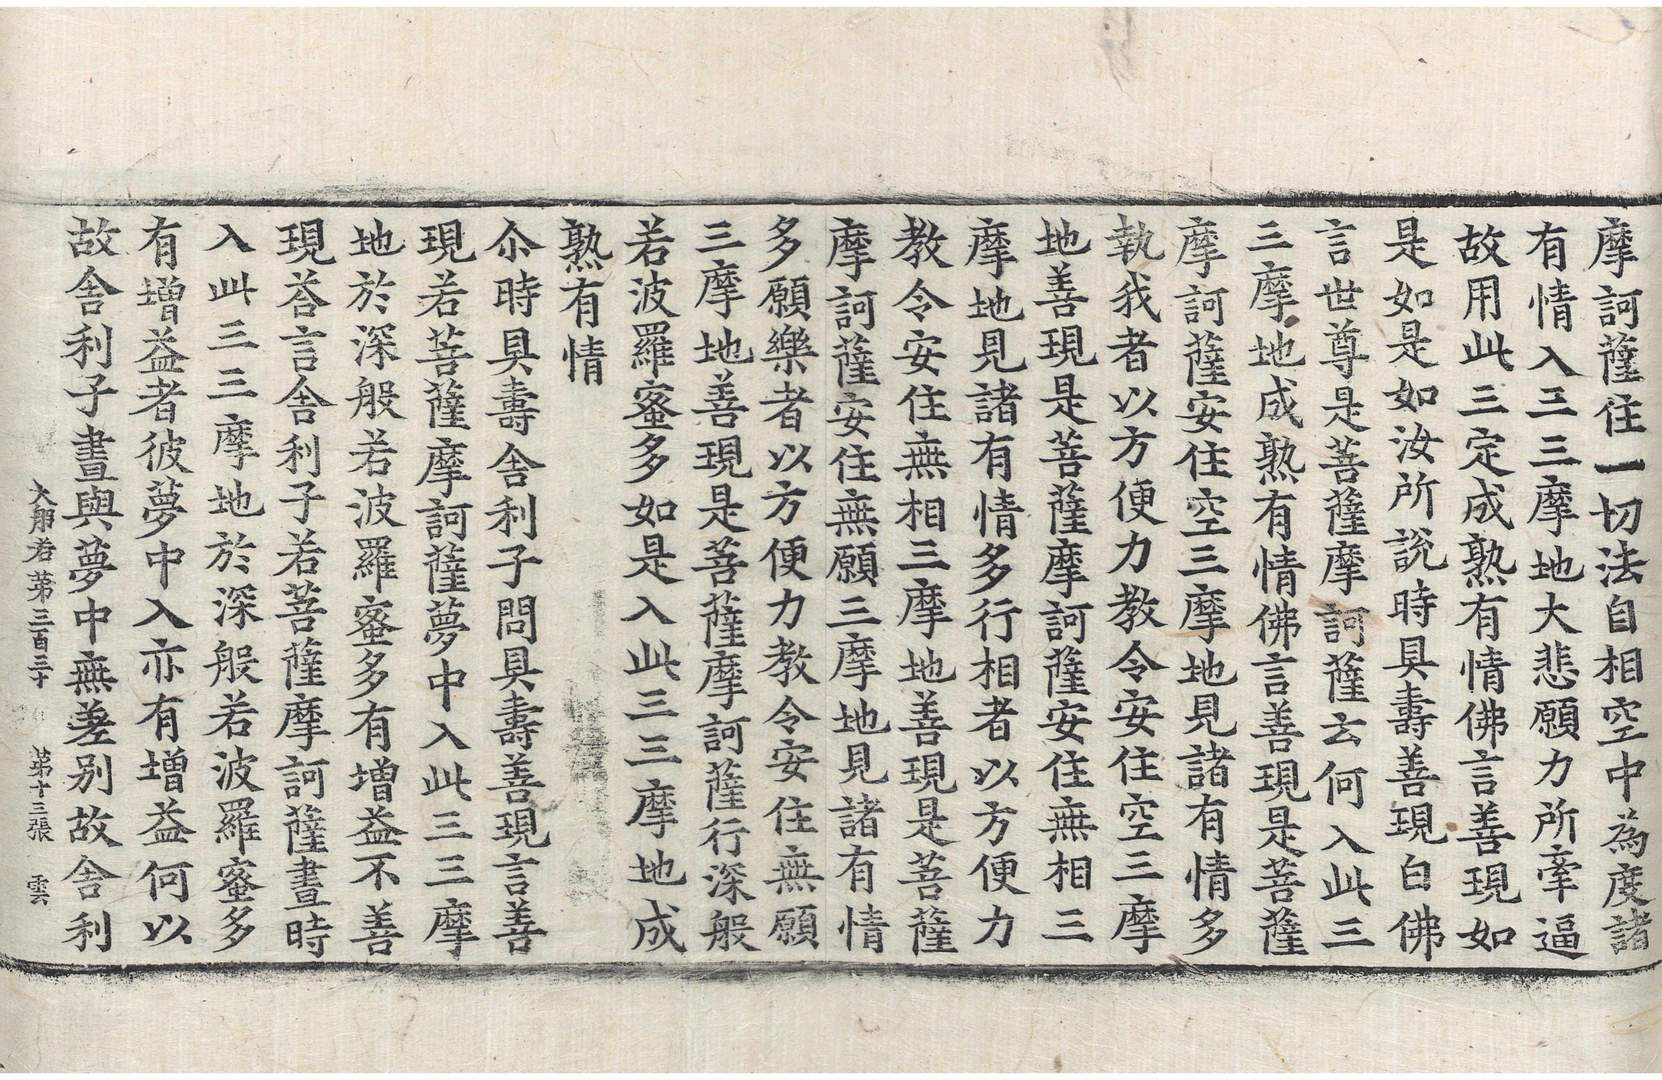 摩訶薩住一切法自相空中為度諸
有情入三三摩地大悲願力所牽逼
故用此三定成熟有情佛言善現如
是如是如汝所說時具壽善現白佛
言世尊是菩薩摩訶薩云何入此三
三摩地成熟有情佛言善現是菩薩
摩訶薩安住空三摩地見諸有情多
執我者以方便力教令安住空三摩
地善現是菩薩摩訶薩安住無相三
摩地見諸有情多行相者以方便力
教令安住無相三摩地善現是菩薩
摩訶薩安住無願三摩地見諸有情
多願樂者以方便力教令安住無願
三摩地善現是菩薩摩訶薩行深般
若波羅蜜多如是入此三三摩地成
熟有情
尒時具壽舍利子問具壽善現言善
現若菩薩摩訶薩夢中入此三三摩
地於深般若波羅蜜多有增益不善
現荅言舍利子若菩薩摩訶薩晝時
入此三三摩地於深般若波羅蜜多
有增益者彼夢中入亦有增益何以
故舍利子晝與夢中無差別故舍利
大般若第三百三十 第十三張 雲